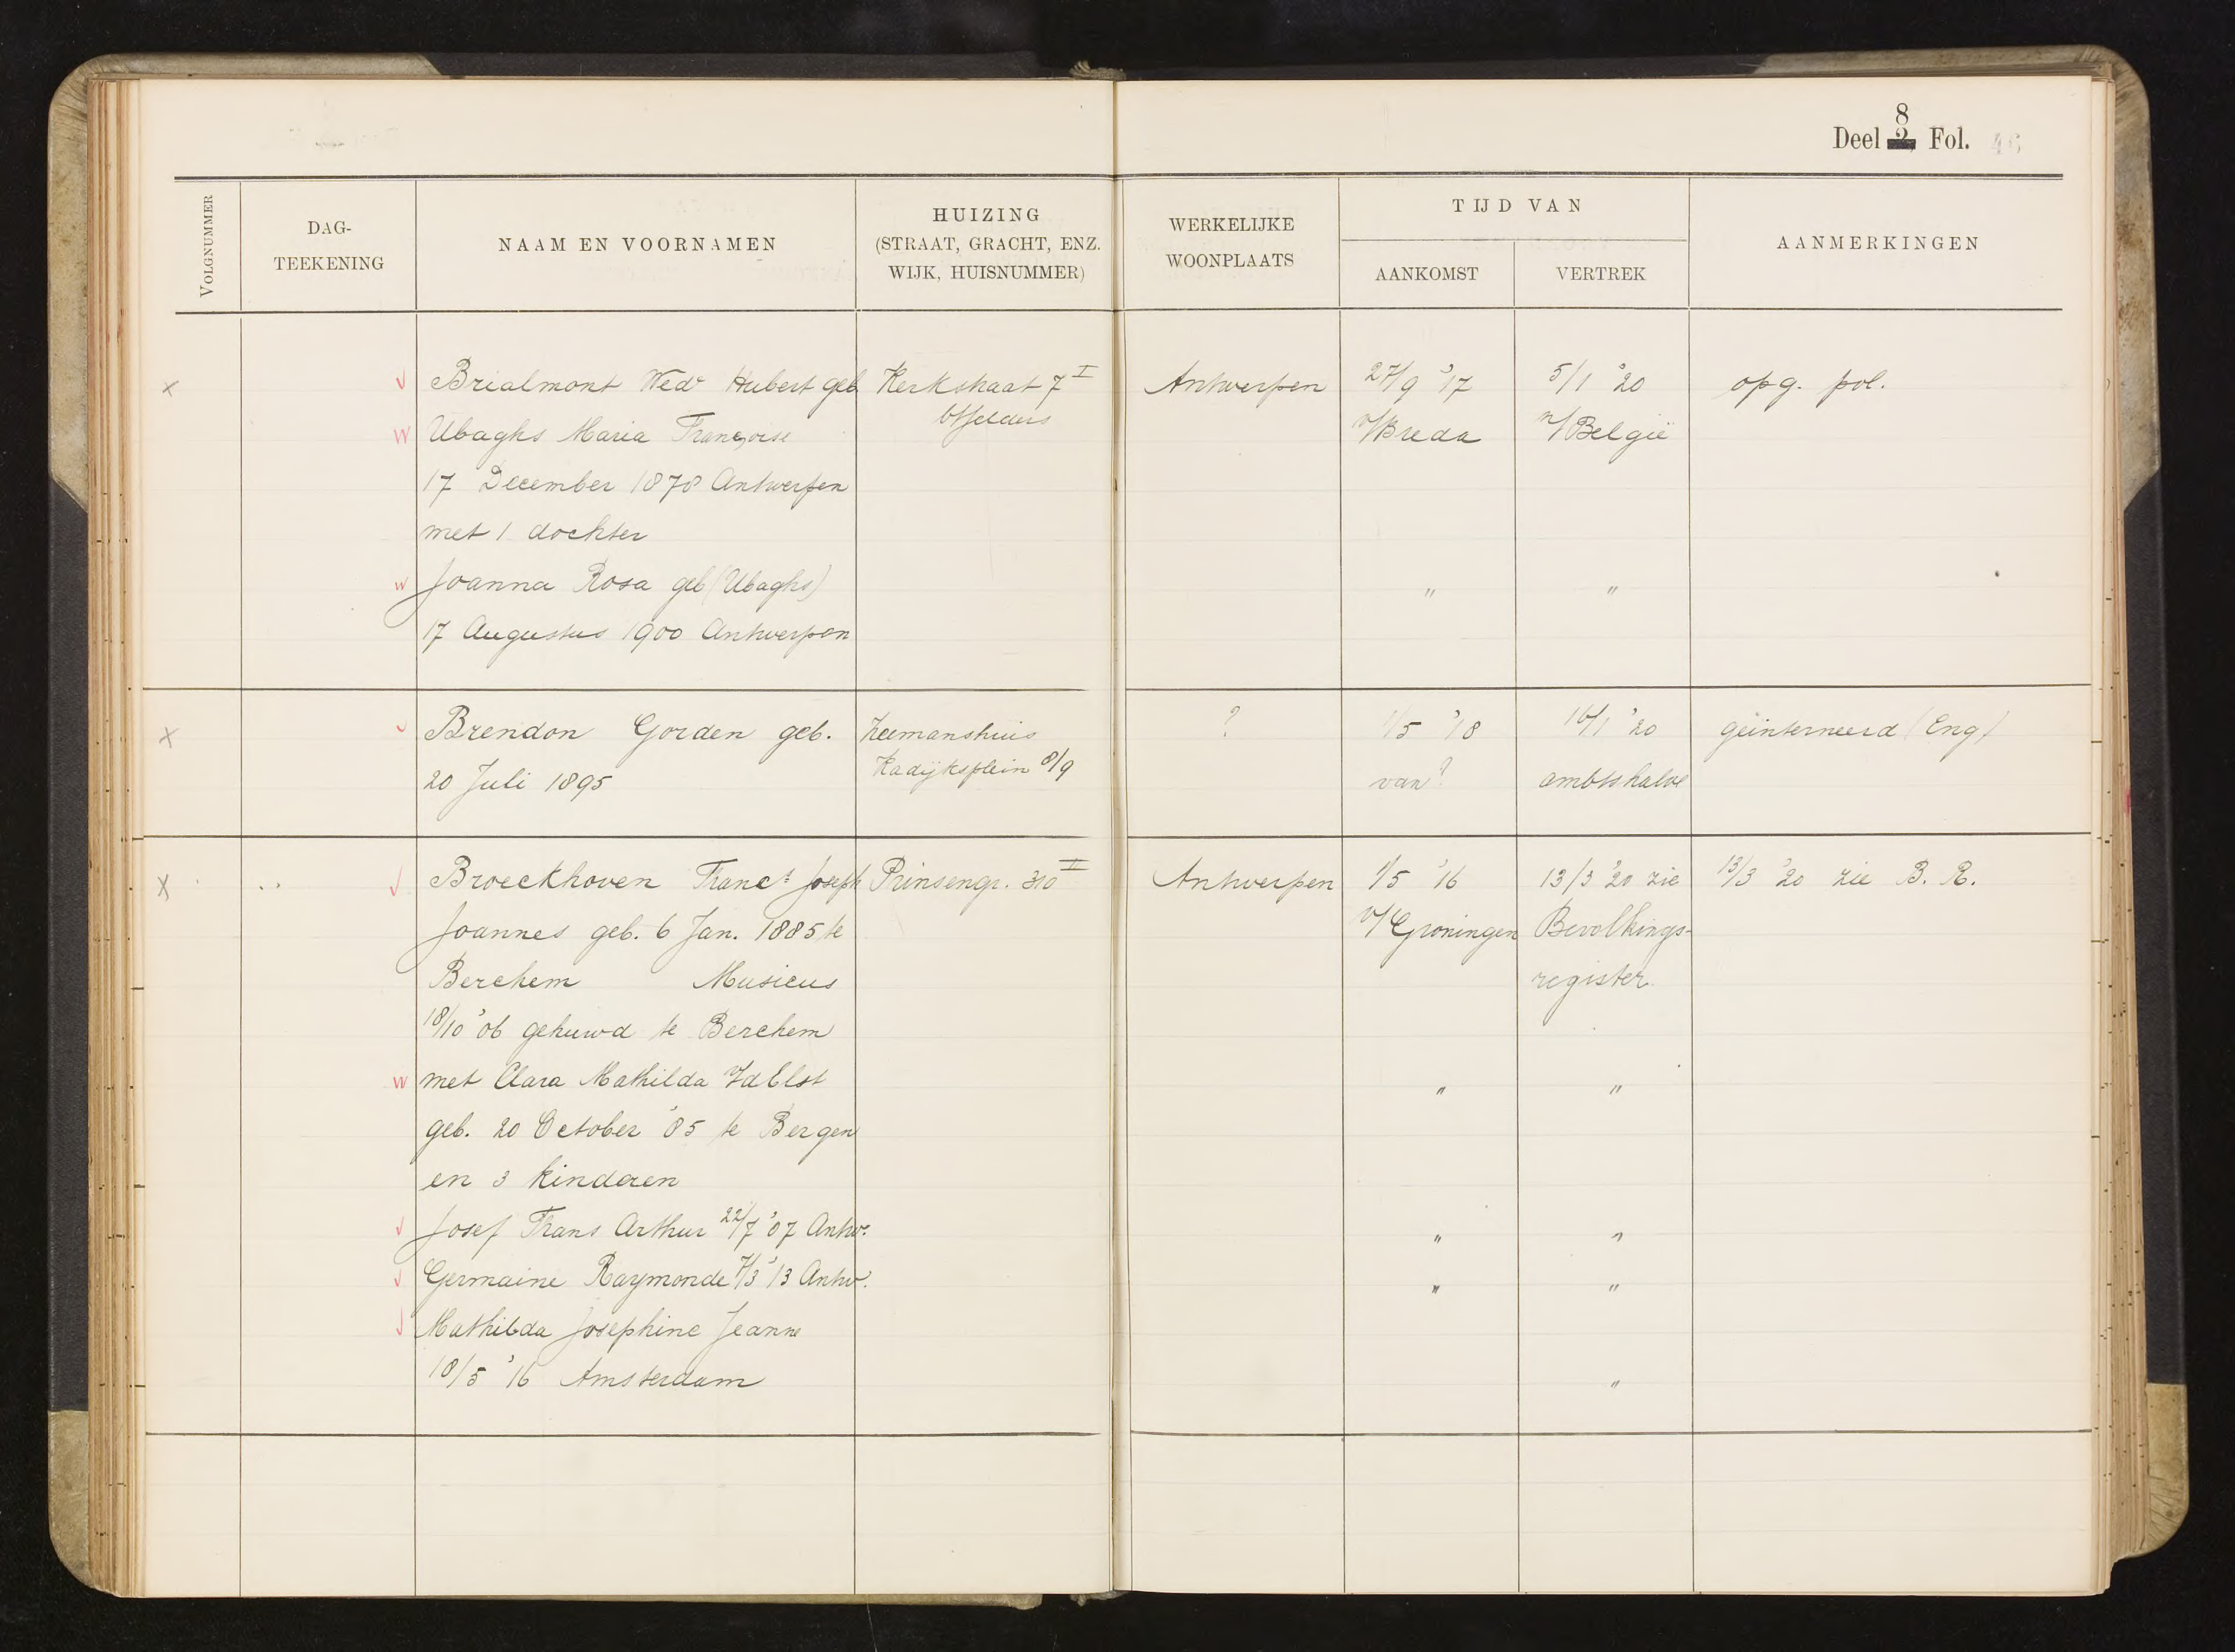 8
Deel 2, Fol. 46
VOLGNUMMER
DAG-
TEEKENING
NAAM EN VOORNAMEN
HUIZING
(STRAAT, GRACHT, ENZ.
WIJK, HUISNUMMER)
WERKELIJKE
WOONPLAATS
TIJD VAN
AANKOMST
VERTREK
AANMERKINGEN
x Brialmont Wedr Hubert geb Kerkstraat 7 I Antwerpen 27/9 '17 5/1 '20 opg. pol.
Ubaghs Maria Françoise v/Breda n/België
17 December 1878 Antwerpen
met 1 dochter
Joanna Rosa geb (Ubaghs) " "
17 Augustus 1900 Antwerpen
x Brendon Gorden geb. Zeemanshuis ? 1/5 '18 16/1 '20 geïnterneerd (Eng)
20 Juli 1895 Kadijksplein 8/9 van? ambtshalve
x Broeckhoven Franc^s Joseph Prinsengr. 310 II Antwerpen 1/5 '16 13/3 '20 zie 13/3 '20 zie B. R.
Joannes geb. 6 Jan. 1885 te v/Groningen Bevolkings-
Berchem Musicus register.
18/10 '06 gehuwd te Berchem
met Clara Mathilda " "
geb. 20 October '85 te Bergen
en 3 kinderen
Josef Frans Arthur 22/7 '07 Antw. " "
Germaine Raymonde 7/3 '13 Antw. " "
Mathilda Josephine Jeanne
18/5 '16 Amsterdam "